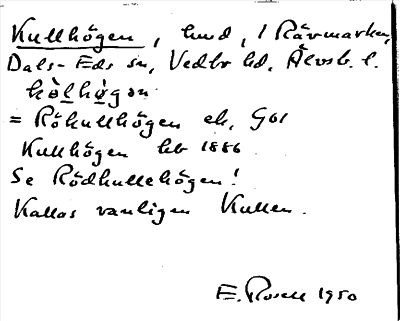 Kullhögen, hmd, i Rävmarken,
Dals-Eds sn, Vedbo hd, Älvsb. l.
kòl̲hø̲̀gən
= Rökullhögen ek, G01
Kullhögen hb 1886
Se Rödkullehögen!
Kallas vanligen Kullen.
E. Rosell 1950